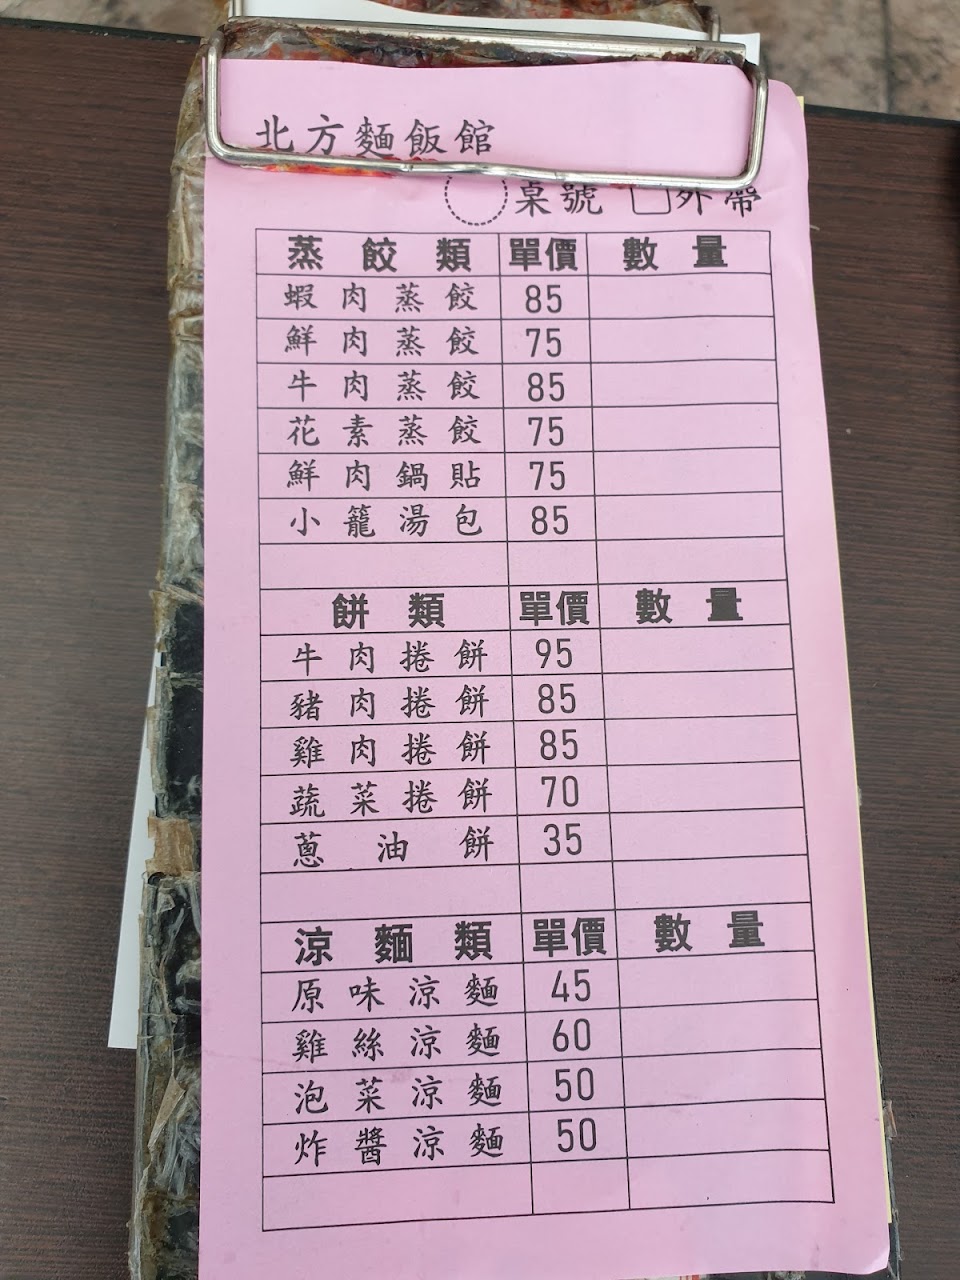 北方麵飯館
桌號 外帶
蒸餃類 單價 數量
蝦肉蒸餃 85
鮮肉蒸餃 75
牛肉蒸餃 85
花素蒸餃 75
鮮肉鍋貼 75
小籠湯包 85
餅類 單價 數量
牛肉捲餅 95
豬肉捲餅 85
雞肉捲餅 85
蔬菜捲餅 70
蔥油餅 35
涼麵類 單價 數量
原味涼麵 45
雞絲涼麵 60
泡菜涼麵 50
炸醬涼麵 50